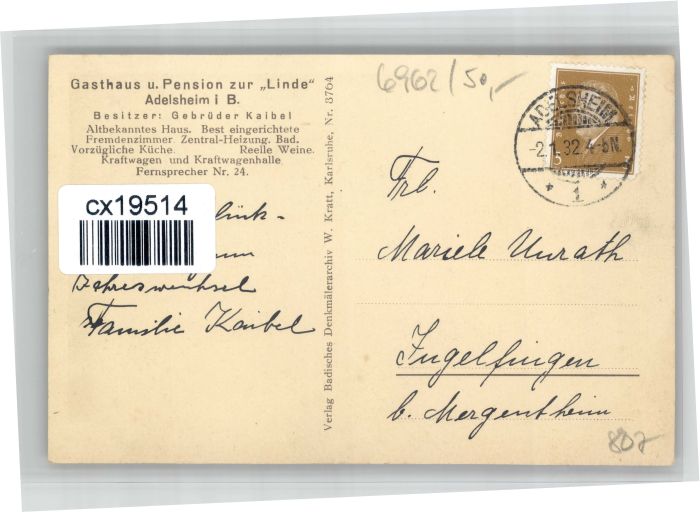 Gasthaus u. Pension zur „Linde"
Adelsheim i B.
Besitzer: Gebrüder Kaibel
Altbekanntes Haus. Best eingerichtete
Fremdenzimmer. Zentral-Heizung. Bad.
Vorzügliche Küche. Reelle Weine.
Kraftwagen und Kraftwagenhalle.
Fernsprecher Nr. 24.
cx19514
Jahreswechsel
Familie Kaibel
Verlag Badisches Denkmälerarchiv W. Kratt, Karlsruhe, Nr. 3764
6962/50,-
ADELSHEIM
-2.1.32.4-5N.
* 1 *
5
Frl.
Mariele Unrath
Ingelfingen
b. Mergentheim
807